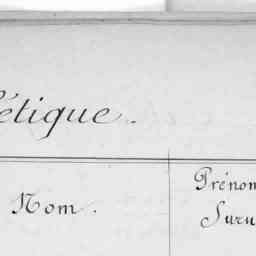 étique.
Nom.
Prénom
Suru